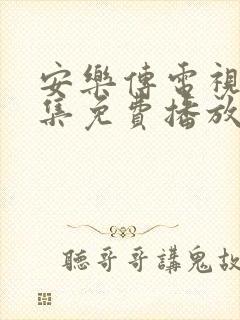 安樂傳電視
集免費播放
聽哥哥講鬼故